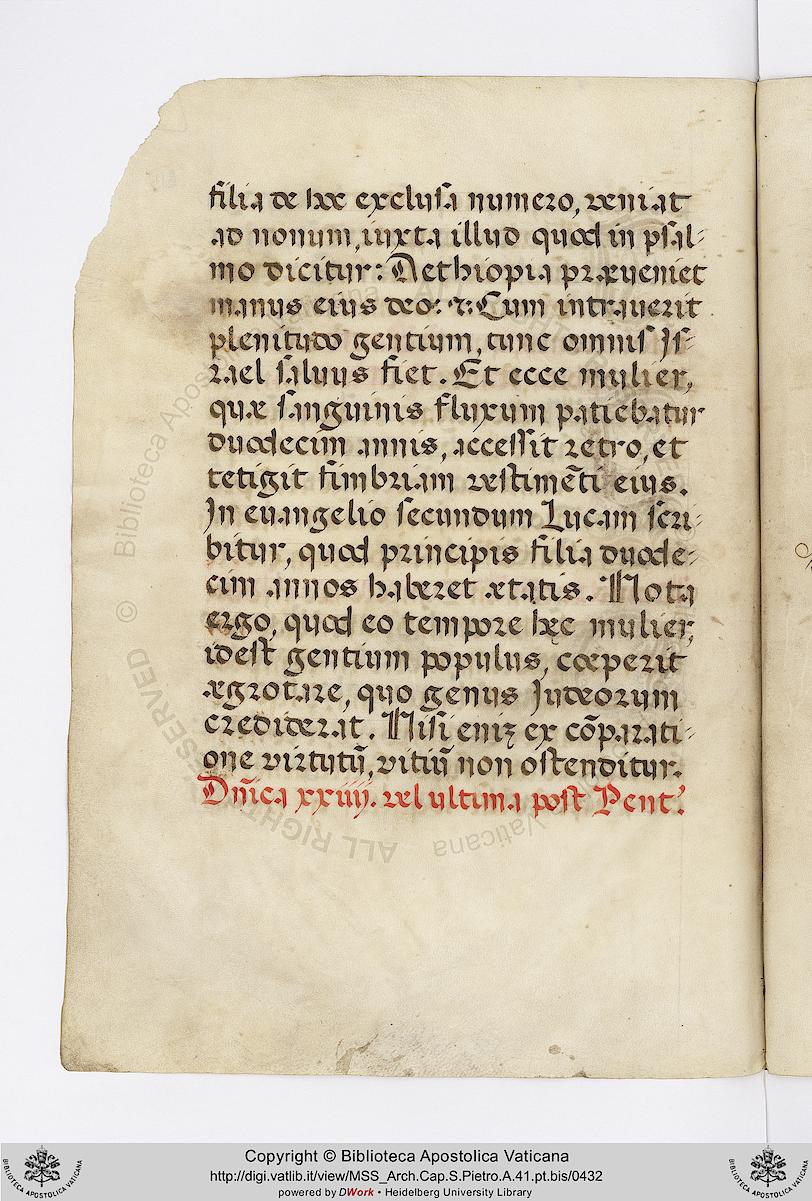 filia de hac exclusa numero, veniat
ad nonum, iuxta illud quod in psal-
mo dicitur: Aethiopia præveniet
manus eius deo: &: Cum intraverit
plenitudo gentium, tunc omnis Is-
rael salvus fiet. Et ecce mulier,
quæ sanguinis fluxum patiebatur
duodecim annis, accessit retro, et
tetigit fimbriam vestimēti eius.
In evangelio secundum Lucam scri-
bitur, quod principis filia duode-
cim annos haberet ætatis. Nota
ergo, quod eo tempore hęc mulier,
idest gentium populus, cœperit
ægrotare, quo genus Iudeorum
crediderat. Nisi eniȝ ex cōparati-
one virtutū, vitiū non ostenditur.
Dn̄ica xxiiij. vel ultima post Pent.
© Biblioteca Apostolica Vaticana
ALL RIGHTS RESERVED
Copyright © Biblioteca Apostolica Vaticana
http://digi.vatlib.it/view/MSS_Arch.Cap.S.Pietro.A.41.pt.bis/0432
powered by DWork • Heidelberg University Library
BIBLIOTECA APOSTOLICA VATICANA
BIBLIOTECA APOSTOLICA VATICANA